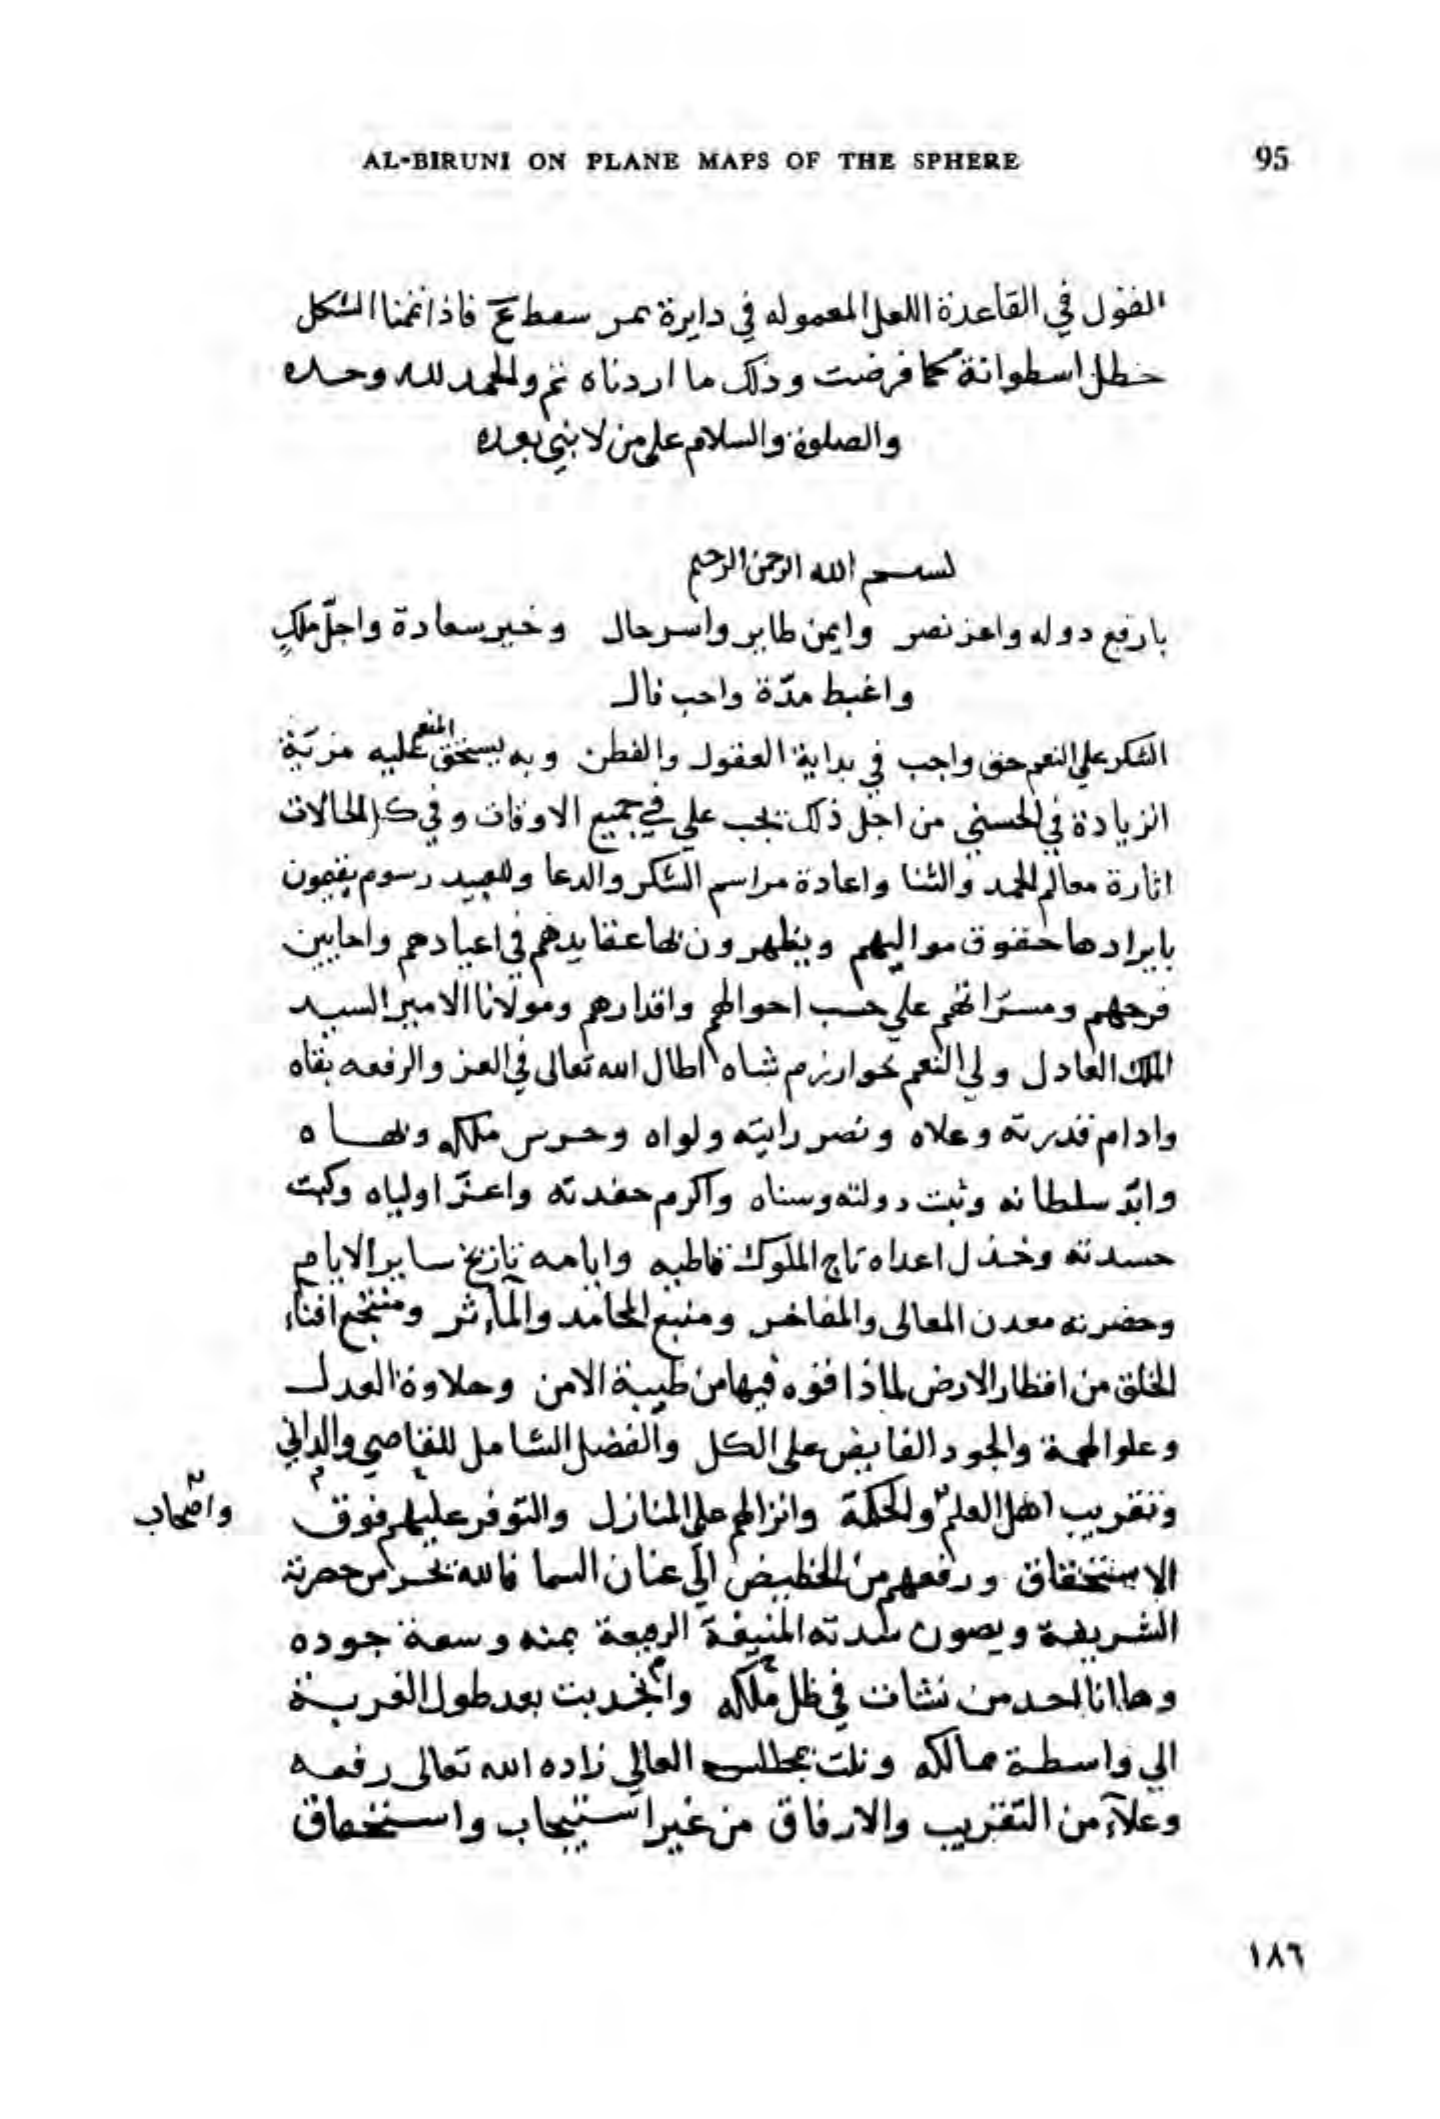 AL-BIRUNI ON PLANE MAPS OF THE SPHERE 95
القول في القاعدة المعموله في دايرة فاذا تممنا الشكل
اسطوانة كما فرضت وذلك ما اردناه تم والحمد لله وحده
والصلوة والسلام علي من لا نبي بعده
بسم الله الرحمن الرحيم
بارفع دوله واعز نصر وايمن طاير واسر حال وخير سعادة واجلّ ملكٍ
واغبط مدّة واحب فال
الشكر علي النعم حق واجب في بداية العقول والفطن وبه يستحق المنعم عليه مزيّة
الزيادة في الحسني من اجل ذلك يجب علي في جميع الاوقات وفي كل الحالات
اثارة معالم الحمد والثنا واعادة مراسم الشكر والدعا وللعبيد رسوم يقيمون
بايرادها حقوق مواليهم ويظهرون بها عقايدهم في اعيادهم واحايين
فرحهم ومسرّاتهم علي حسب احوالهم واقدارهم ومولانا الامير السيد
الملك العادل ولي النعم خوارزم شاه اطال الله تعالى في العز والرفعه بقاه
وادام قدرته وعلاه ونصر رايته ولواه وحرس ملكه
وابّد سلطانه وثبت دولته وسناه واكرم حفدته واعزّ اولياه وكبت
حسدته وخذل اعداه تاج الملوك قاطبه وايامه تاريخ ساير الايام
وحضرته معدن المعالى والمفاخر ومنبع المحامد والمآثر ومنتجع افناء
الخلق من اقطار الارض لما ذاقوه فيها من طيبة الامن وحلاوة العدل
وعلو الهمة والجود الفايض على الكل والفضل الشامل للقاصي والداني
وتقريب اهل العلم والحكمة وانزالهم علي المنازل والتوفر عليهم فوق
واصحاب
الاستحقاق ورفعهم من الحضيض الي عنان السما فالله يحرس حضرته
الشريفة ويصون سدته المنيفة الرفيعة بمنه وسعة جوده
وها انا احد من نشات في ظل ملكه وانجذبت بعد طول الغربة
الي واسطة ممالكه ونلت بمجلسه العالي زاده الله تعالى رفعه
وعلآء من التقريب والارفاق من غير استيجاب واستحقاق
١٨٦